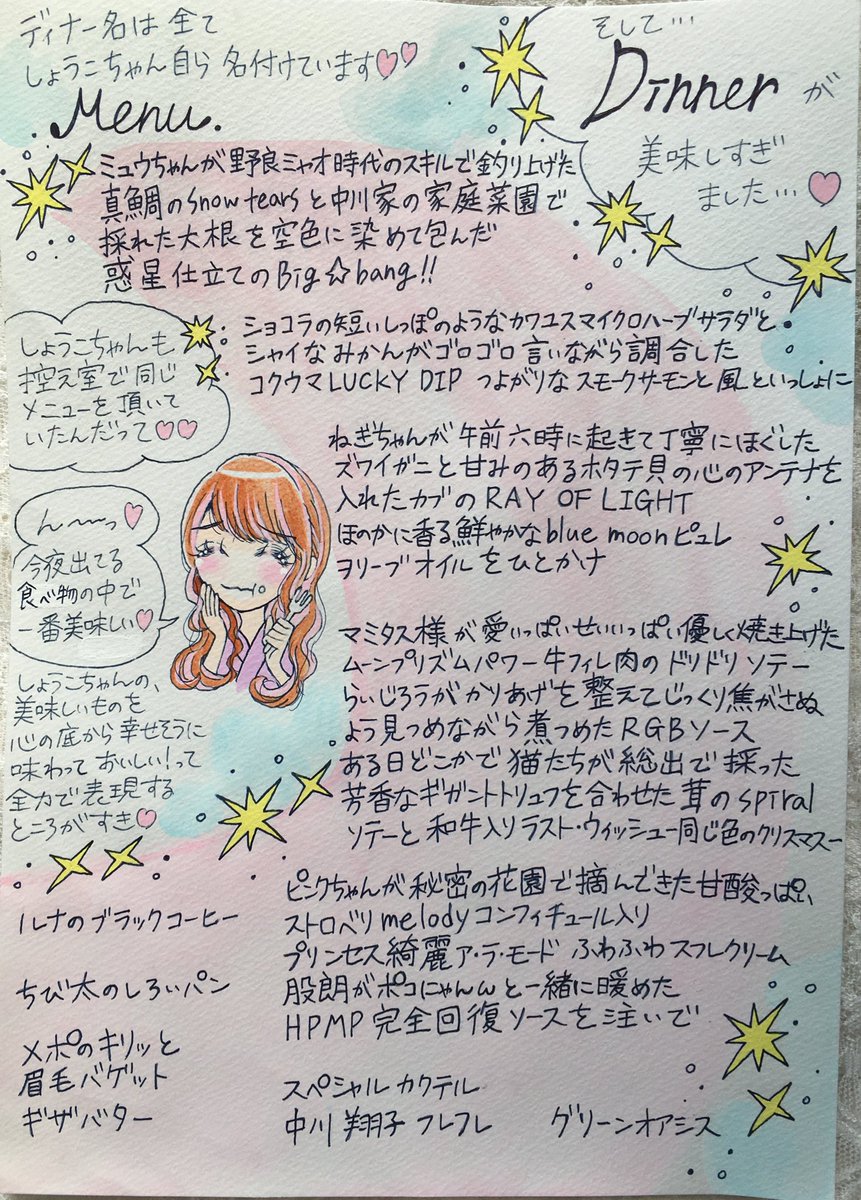 ディナー名は全て
しょうこちゃん自ら名付けています♡♡
Menu.
そして…
Dinnerが
美味しすぎ
ました…♡
ミュウちゃんが野良ミャオ時代のスキルで釣り上げた
真鯛のsnow tearsと中川家の家庭菜園で
採れた大根を空色に染めて包んだ
惑星仕立てのBig☆bang!!
ショコラの短いしっぽのようなカワユスマイクロハーブサラダと
シャイなみかんがゴロゴロ言いながら調合した
コクウマLUCKY DIP つよがりなスモークサーモンと風といっしょに
しょうこちゃんも
控え室で同じ
メニューを頂いて
いたんだって♡♡
ねぎちゃんが午前六時に起きて丁寧にほぐした
ズワイガニと甘みのあるホタテ貝の心のアンテナを
入れたカブのRAY OF LIGHT
ほのかに香る鮮やかなblue moonピュレ
オリーブオイルをひとかけ
ん〜〜っ♡
今夜出てる
食べ物の中で
一番美味しい♡
マミタス様が愛いっぱいせいいっぱい優しく焼き上げた
ムーンプリズムパワー牛フィレ肉のドリドリソテー
らいじろうがかりあげを整えてじっくり焦がさぬ
よう見つめながら煮つめたRGBソース
ある日どこかで猫たちが総出で採った
芳香なギガントトリュフを合わせた茸のspiral
ソテーと和牛入りラスト・ウィッシュ一同じ色のクリスマスー
しょうこちゃんの、
美味しいものを
心の底から幸せそうに
味わっておいしい!って
全力で表現する
ところがすき♡
ピンクちゃんが秘密の花園で摘んできた甘酸っぱい
ストロベリmelodyコンフィチュール入り
プリンセス綺麗ア・ラ・モード ふわふわスフレクリーム
股朗がポコにゃんωと一緒に暖めた
HPMP完全回復ソースを注いで
ルナのブラックコーヒー
ちび太のしろいパン
メポのキリッと
眉毛バゲット
ギザバター
スペシャルカクテル
中川翔子フレフレ グリーンオアシス